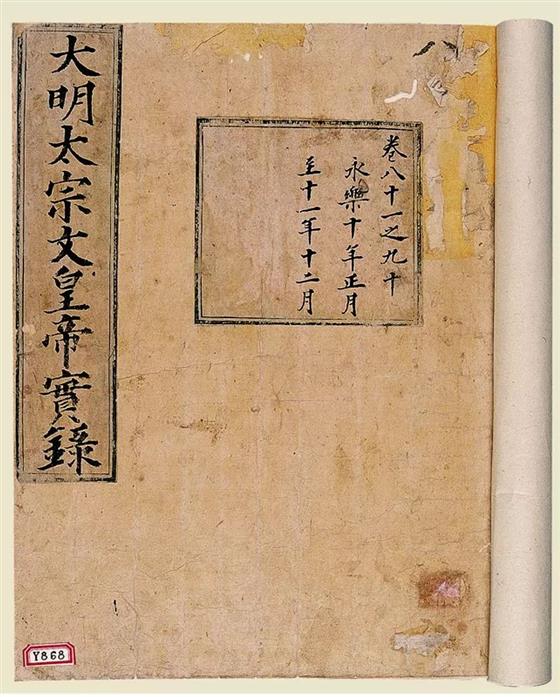 大明太宗文皇帝實錄
卷八十一之九十
永樂十年正月
至十一年十二月
Y868